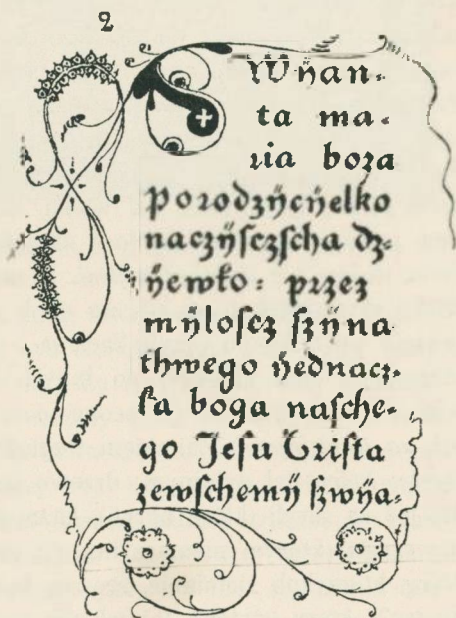 2
SWÿan-
ta ma-
ria boza
Porodzÿcÿelko
naczÿſczſcha dz-
ÿewko: przez
mÿloſcz ſzÿna
thwego ÿednacz-
ka boga naſche-
go Jeſu Criſta
zewſchemÿ ſzwÿa-